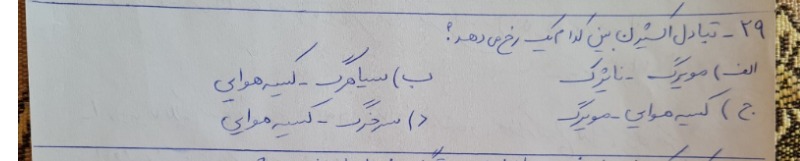 ۲۹ - تبادل اکسیژن بین کدام یک رخ می دهد؟
الف) مویرگ - نایژک ب) سیاهرگ - کیسه هوایی
ج) کیسه هوایی - مویرگ د) سرخرگ - کیسه هوایی